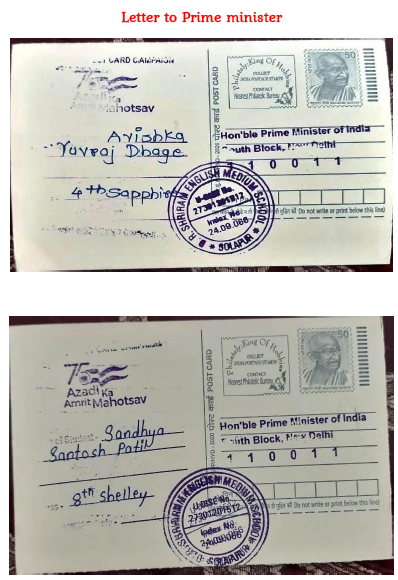 Letter to Prime minister
CARD CAMPAIGN
75
Azadi Ka
Mahotsav
Avishka
Yuvraj Dhage
4th Sapphire
POST CARD
पोस्ट कार्ड
Philately-King Of Hobbies
COLLECT
INDIA POSTAGE
STAMPS
CONTACT
Nearest Philatelic Bureau
50
Hon'ble Prime Minister of India
South Block, New Delhi
1 1 0 0 1 1
SHRIRAM ENGLISH MEDIUM SCHOOL
U-DISE No.
27301201512
Index No
24.09.066
SOLAPUR
Do not write or print below this line)
75
Azadi Ka
Amrit Mahotsav
Sandhya
Santosh Patil
8th Shelley
POST CARD
पोस्ट कार्ड
Philately-King Of Hobbies
COLLECT
INDIA POSTAGE
STAMPS
CONTACT
Nearest Philatelic Bureau
50
Hon'ble Prime Minister of India
South Block, New Delhi
1 1 0 0 1 1
SHRIRAM ENGLISH MEDIUM SCHOOL
U-DISE No.
27301201512
Index No
24.09.066
SOLAPUR
Do not write or print below this line)